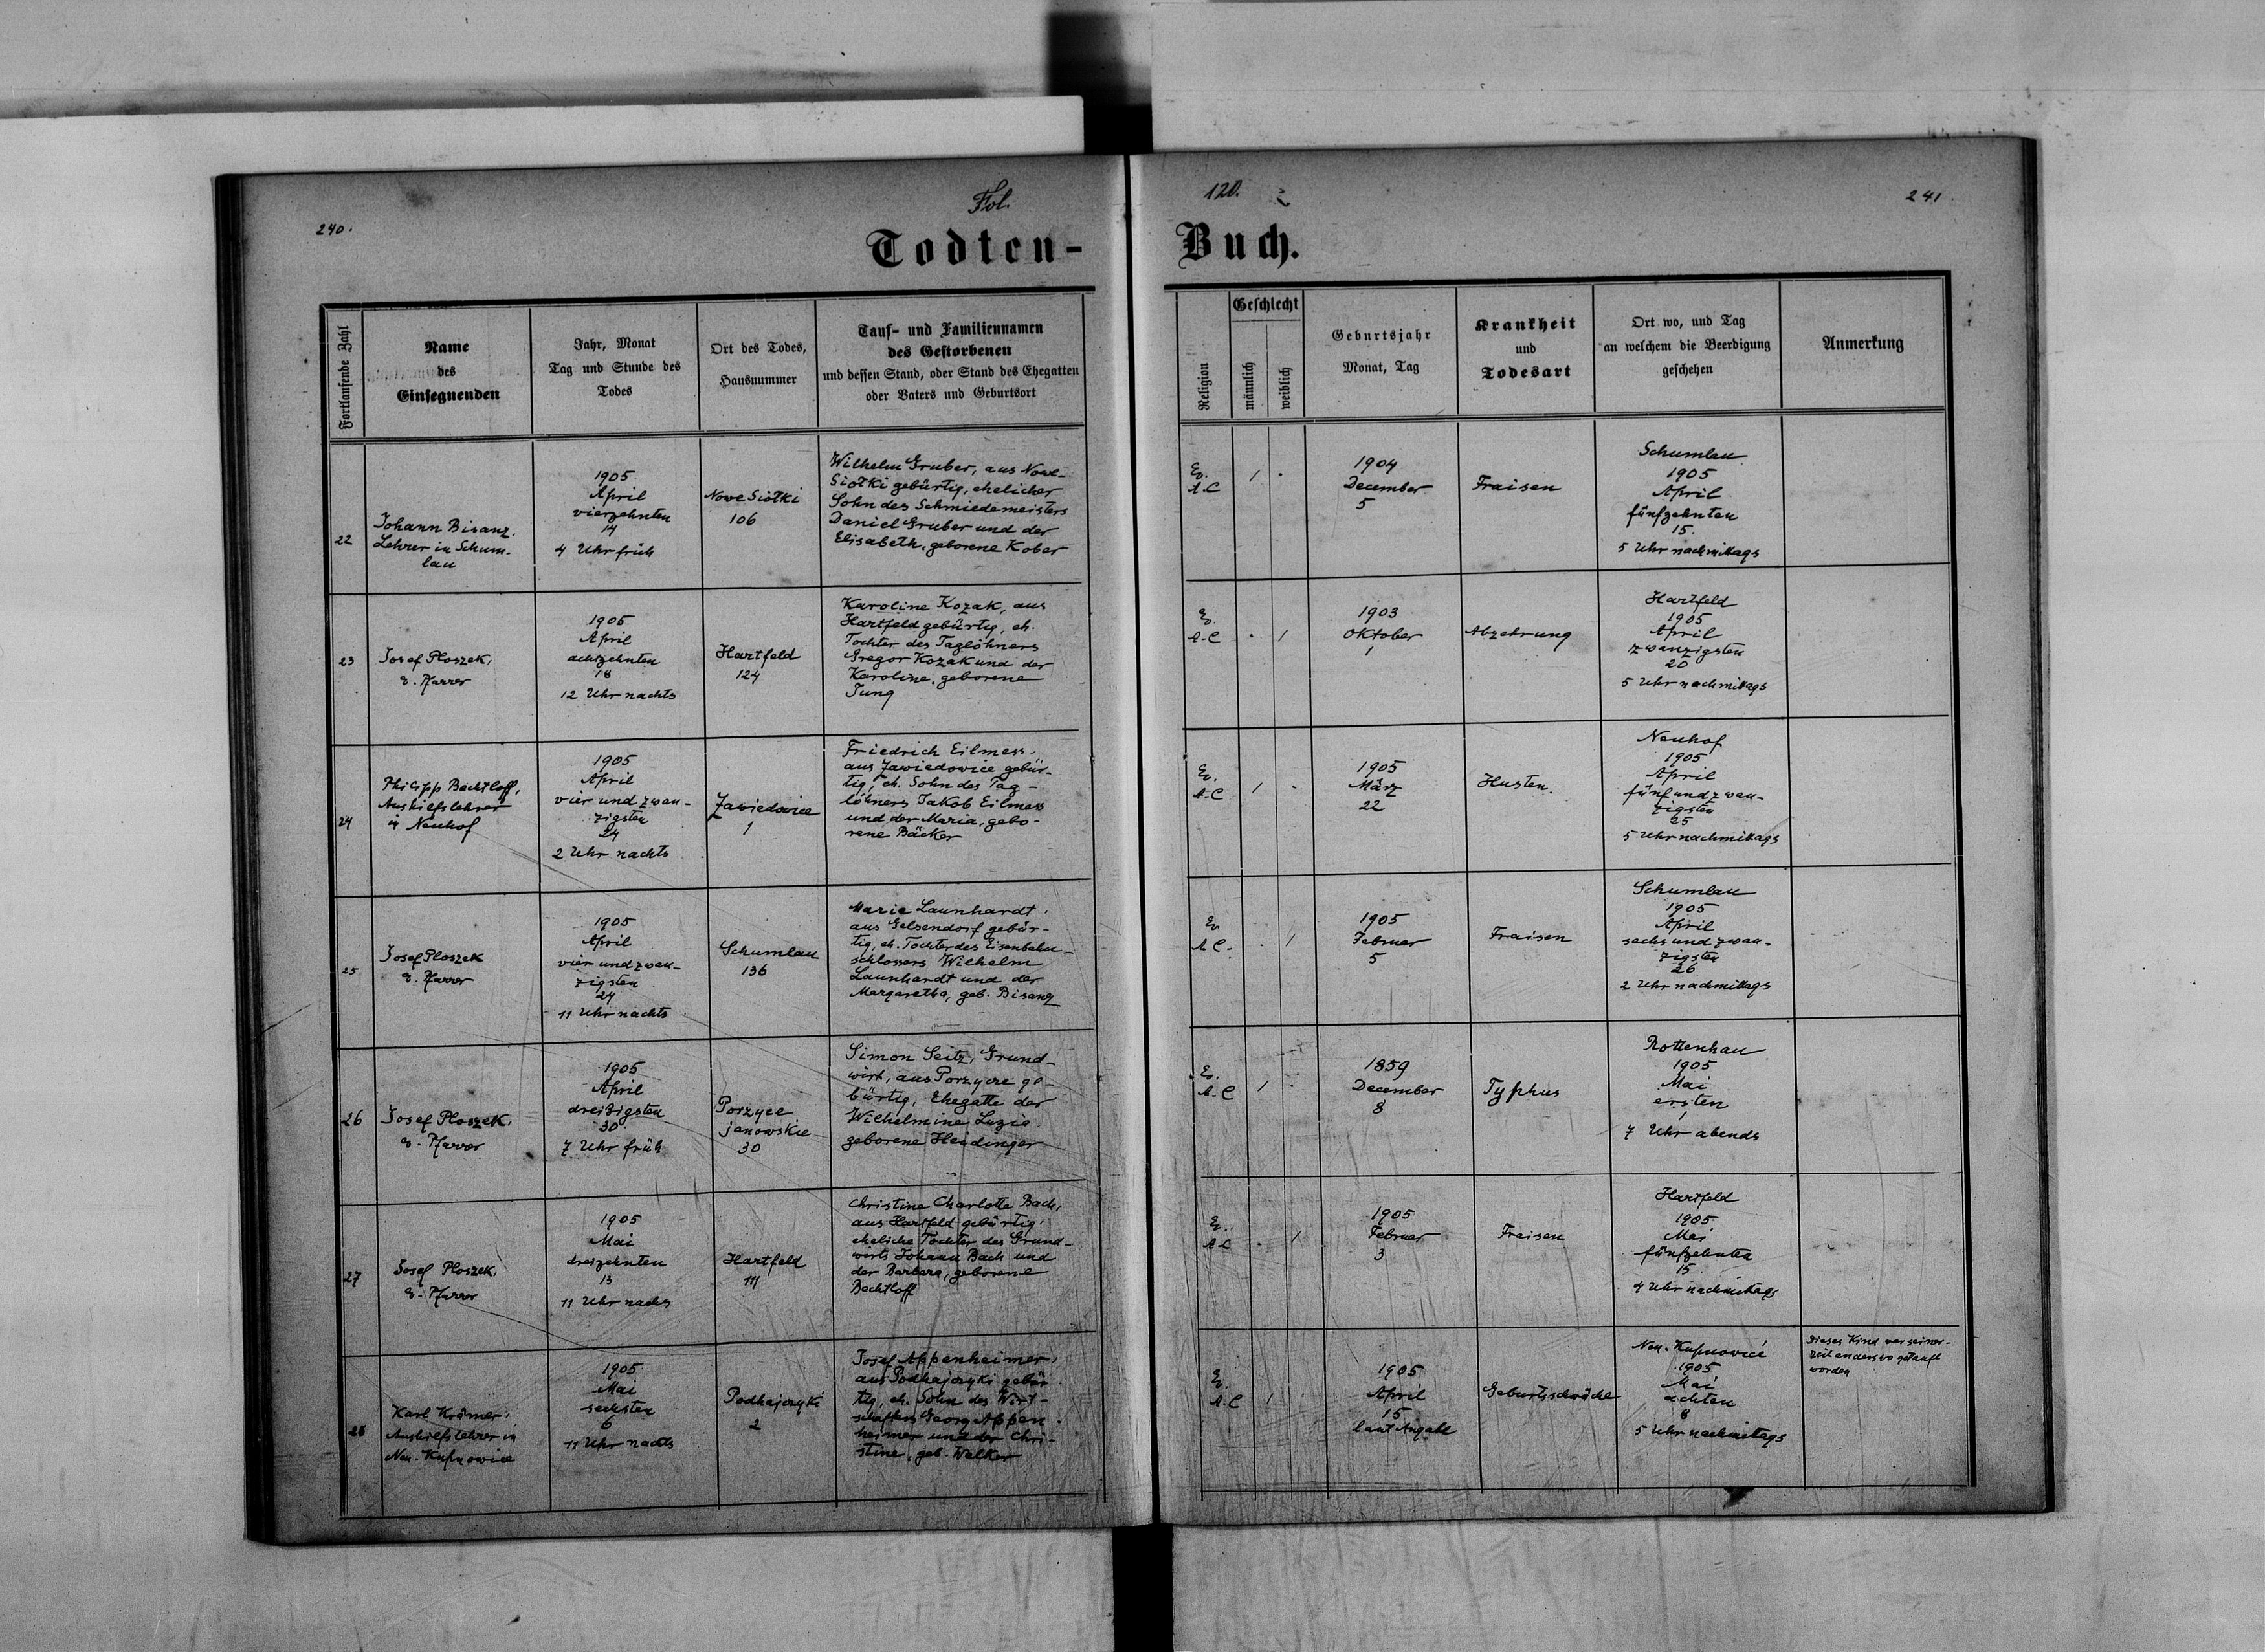 240.
Fol.
120.
241
Todten-
Buch.
Fortlaufende Zahl
Name
des
Einsegnenden
Jahr, Monat
Tag und Stunde des
Todes
Ort des Todes,
Hausnummer
Tauf- und Familiennamen
des Gestorbenen
und dessen Stand, oder Stand des Ehegatten
oder Vaters und Geburtsort
Religion
Geschlecht
männlich
weiblich
Geburtsjahr
Monat, Tag
Krankheit
und
Todesart
Ort wo, und Tag
an welchem die Beerdigung
geschehen
Anmerkung
22
Johann Bisanz,
Lehrer in Schum-
lau
1905
April
vierzehnten
14
4 Uhr früh
Nowe Siołki
106
Wilhelm Gruber, aus Nowe-
Siołki gebürtig, ehelicher
Sohn des Schmiedemeisters
Daniel Gruber und der
Elisabeth, geborene Kober
Ev.
A.C
1904
December
5
Fraisen
Schumlau
1905
April
fünfzehnten
15.
5 Uhr nachmittags
23
Josef Ploszek,
e. Pfarrer
1905
April
achtzehnten
18
12 Uhr nachts
Hartfeld
124
Karoline Kozak, aus
Hartfeld gebürtig, eh.
Tochter des Taglöhners
Gregor Kozak und der
Karoline, geborene
Jung
Ev.
A.C
1903
Oktober
1
Abzehrung
Hartfeld
1905
April
zwanzigsten
20
5 Uhr nachmittags
24
Philipp Bechtloff,
Aushilfslehrer
in Neuhof
1905
April
vier und zwan-
zigsten
24
2 Uhr nachts
Zawiedowice
1
Friedrich Eilmess,
aus Zawiedowice gebür-
tig, eh. Sohn des Tag-
löhners Jakob Eilmess
und der Maria, gebo-
rene Bäcker
Ev.
A.C
1905
März
22
Husten.
Neuhof
1905
April
fünf und zwan-
zigsten
25
5 Uhr nachmittags
25
Josef Ploszek
e. Pfarrer
1905
April
vier und zwan-
zigsten
24
11 Uhr nachts
Schumlau
136
Marie Launhardt,
aus Gelsendorf gebür-
tig, eh. Tochter des Eisenbahn-
schlossers Wilhelm
Launhardt und der
Margaretha, geb. Bisanz
Ev
A.C.
1905
Februar
5
Fraisen
Schumlau
1905
April
sechs und zwan-
zigsten
26
2 Uhr nachmittags
26
Josef Ploszek,
e. Pfarrer
1905
April
dreißigsten
30
7 Uhr früh
Porzyce
janowskie
30
Simon Seitz, Grund-
wirt, aus Porzycze ge-
bürtig, Ehegatte der
Wilhelmine Luzia
geborene Heidinger
Ev.
A.C
1859
December
8
Typhus
Rottenhan
1905
Mai
ersten
1
7 Uhr abends
27
Josef Ploszek,
e. Pfarrer
1905
Mai
dreizehnten
13
11 Uhr nachts
Hartfeld
111
Christine Charlotte Bach,
aus Hartfeld gebürtig,
eheliche Tochter des Grund-
wirts Johann Bach und
der Barbara, geborene
Bechtloff
Ev.
A.C
1905
Februar
3
Fraisen
Hartfeld
1905
Mai
fünfzehnten
15
4 Uhr nachmittags
28
Karl Krämer,
Aushilfslehrer in
Neu-Kupnowice
1905
Mai
sechsten
6
11 Uhr nachts
Podhajczyki
2
Josef Appenheimer,
aus Podhajczyki gebür
tig, eh. Sohn des Wirt-
schafters Georg Appen-
heimer und der Chri-
stine, geb. Welker
Ev.
A.C
1905
April
15
laut Angabe
Geburtsschwäche
Neu-Kupnowice
1905
Mai
achten
8
5 Uhr nachmittags
Dieses Kind war seiner-
zeit anderswo getauft
worden